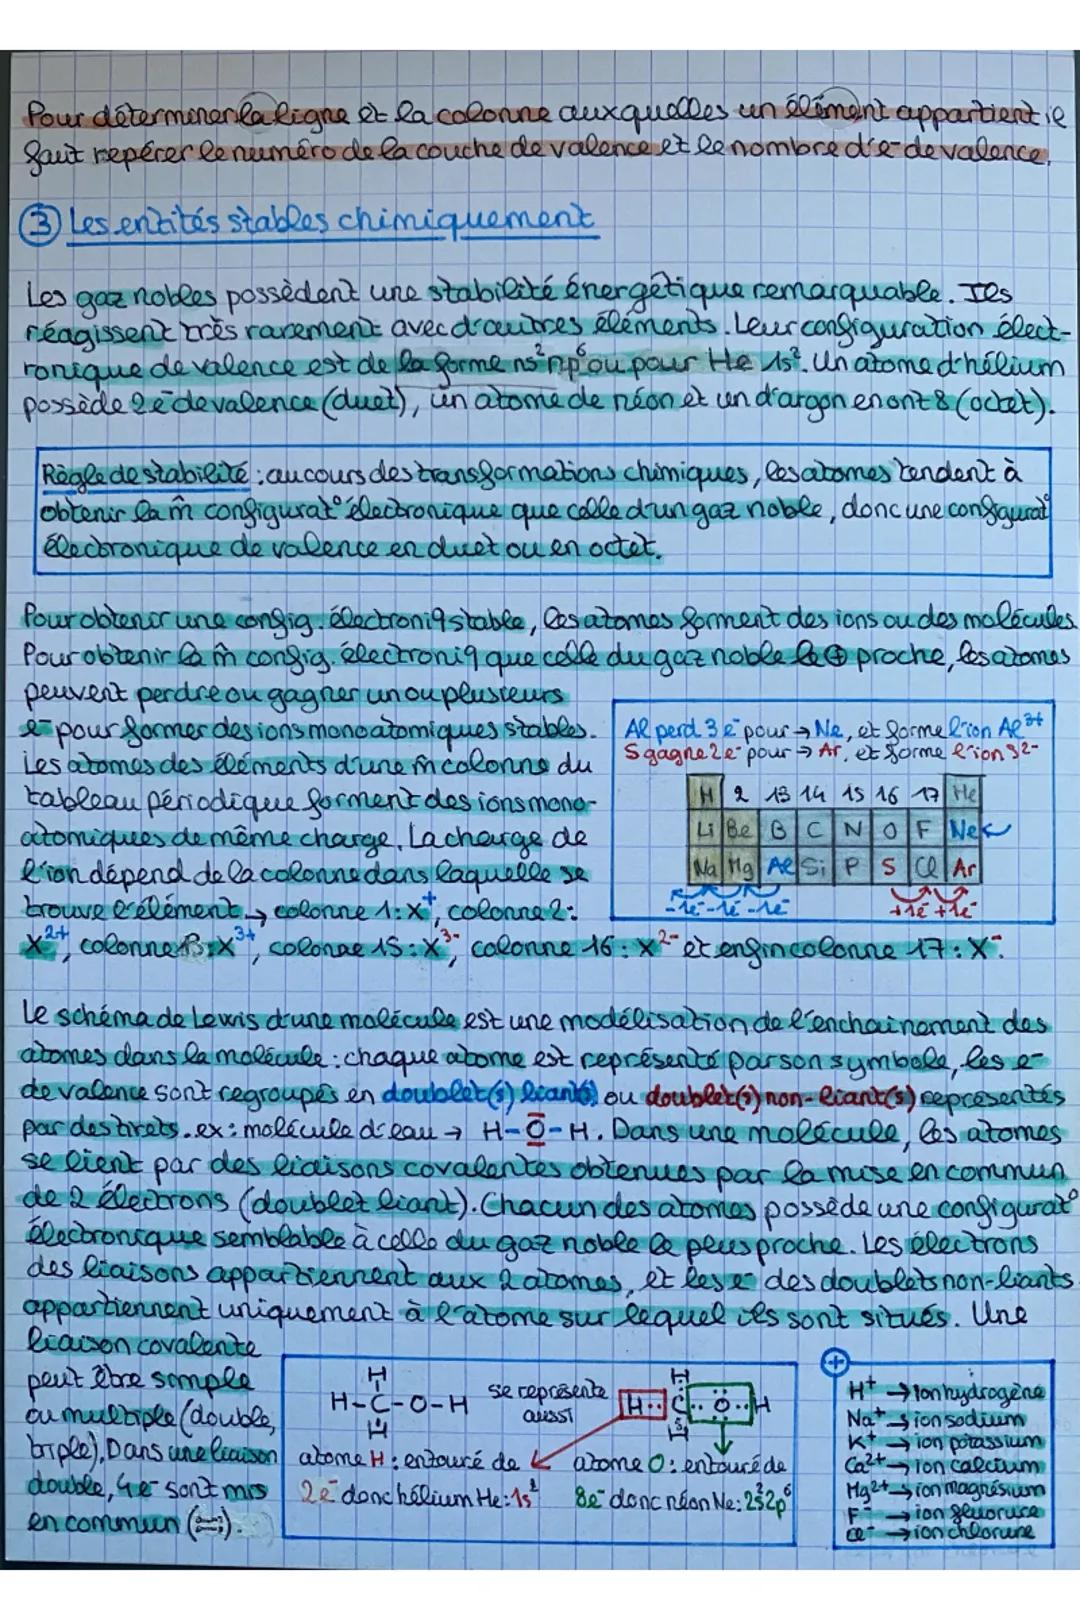 Pour déterminer la ligne et la colonne auxquelles un élément appartient il
faut repérer le numéro de la couche de valence et le nombre d'e- de valence.
③ Les entités stables chimiquement
Les gaz nobles possèdent une stabilité énergétique remarquable. Ils
réagissent très rarement avec d'autres éléments. Leur configuration élect-
ronique de valence est de la forme ns² np⁶ ou pour He 1s². Un atome d'hélium
possède 2e- de valence (duet), un atome de néon et un d'argon en ont 8 (octet).
Règle de stabilité : au cours des transformations chimiques, les atomes tendent à
obtenir la m̂ configurat° électronique que celle d'un gaz noble, donc une configurat°
électronique de valence en duet ou en octet.
Pour obtenir une config. électroniq stable, les atomes forment des ions ou des molécules.
Pour obtenir la m̂ config. électroniq que celle du gaz noble le ⊕ proche, les atomes
peuvent perdre ou gagner un ou plusieurs
e- pour former des ions monoatomiques stables.
Les atomes des éléments d'une m̂ colonne du
tableau périodique forment des ions mono-
atomiques de même charge. La charge de
l'ion dépend de la colonne dans laquelle se
trouve l'élément → colonne 1 : X⁺, colonne 2 :
X²⁺, colonne 13 : X³⁺, colonne 15 : X³⁻, colonne 16 : X²⁻ et enfin colonne 17 : X⁻.
Al perd 3 e- pour → Ne, et forme l'ion Al³⁺
S gagne 2e- pour → Ar, et forme l'ion S²⁻
H 2 13 14 15 16 17 He
Li Be B C N O F Ne
Na Mg Al Si P S Cl Ar
-1e- -1e- -1e- +1e- +1e-
Le schéma de Lewis d'une molécule est une modélisation de l'enchainement des
atomes dans la molécule : chaque atome est représenté par son symbole, les e-
de valence sont regroupés en doublet(s) liant(s) ou doublet(s) non-liant(s) représentés
par des tirets. ex : molécule d'eau → H-O-H. Dans une molécule, les atomes
se lient par des liaisons covalentes obtenues par la mise en commun
de 2 électrons (doublet liant). Chacun des atomes possède une configurat°
électronique semblable à celle du gaz noble le plus proche. Les électrons
des liaisons appartiennent aux 2 atomes, et les e- des doublets non-liants
appartiennent uniquement à l'atome sur lequel ils sont situés. Une
liaison covalente
peut être simple
ou multiple (double,
triple). Dans une liaison
double, 4e- sont mis
en commun (=).
H
H-C-O-H
H
se représente
aussi
H
H·· C ·· O ·· H
H
atome H : entouré de
2e- donc hélium He : 1s²
atome O : entouré de
8e- donc néon Ne : 2s²2p⁶
+
H⁺ → ion hydrogène
Na⁺ → ion sodium
K⁺ → ion potassium
Ca²⁺ → ion calcium
Mg²⁺ → ion magnésium
F⁻ → ion fluorure
Cl⁻ → ion chlorure